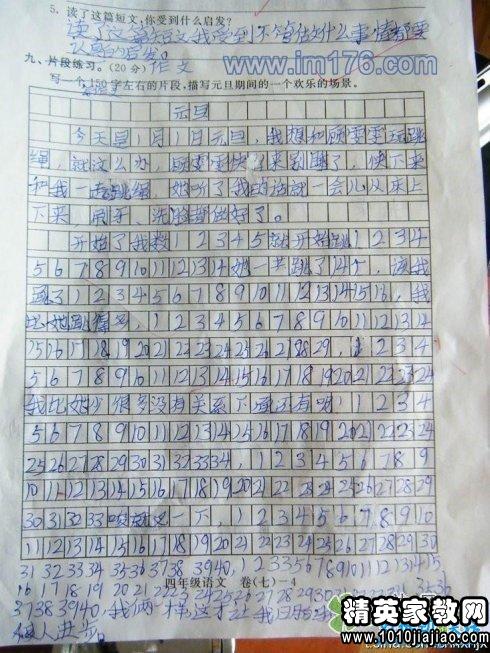 5. 读了这篇短文,你受到什么启发?
读了这篇短文我受到不管做什么事情都要
认真的启发。
www.im176.com
九、片段练习。(20分) 作文
写一个150字左右的片段,描写元旦期间的一个欢乐的场景。
元旦
今天是1月1日元旦,我想和顾雯雯玩跳
绳,就这么办,顾雯雯快 来别睡了,快下来
和我一起跳绳,她听了我的话就一会儿从床上
下来,刷牙、洗脸都做好了。
开始了我数1 2 3 4 5就开始跳1 2 3 4
5 6 7 8 9 10 11 12 13 14她一共跳了14个,该我
跳了1 2 3 4 5 6 7 8 9 10 11 12 13 14 15 16,我
比她跳得多,1 2 3 4 5 6 7 8 9 10 11 12 13 14
15 16 17 18 19 20 21 22 23 24 25 26 27 28 29,1 2 3 4
5 6 7 8 9 10 11 12 13 14 15 16 17 18 19 20 21 22 23 24
我比她少很多没有关系下面还有呀1 2 3 4
5 6 7 8 9 10 11 12 13 14 15 16 17 18 19 20 21 22 23 24
25 26 27 28 29 30 31 32 33 34,1 2 3 4 5 6 7 8 9
10 11 12 13 14 15 16 17 18 19 20 21 22 23 24 25 26 27 28 29
30 31 32 33 一下,1 2 3 4 5 6 7 8 9 10
11 12 13 14 15 16 17 18 19 20 21 22 23 24 25 26 27 28 29 30
31 32 33 34 35 36 37 38 39 40,1 2 3 3 5 6 7 8 9 10 11 12 13 14 15
四年级语文 卷(七)—4
16 17 18 19 20 21 22 23 24 25 26 27 28 29 30 31 32 33 34 35 36
37 38 39 40,我俩一样,这才让我
人进步。
精英家教网
www.1010jiajiao.com